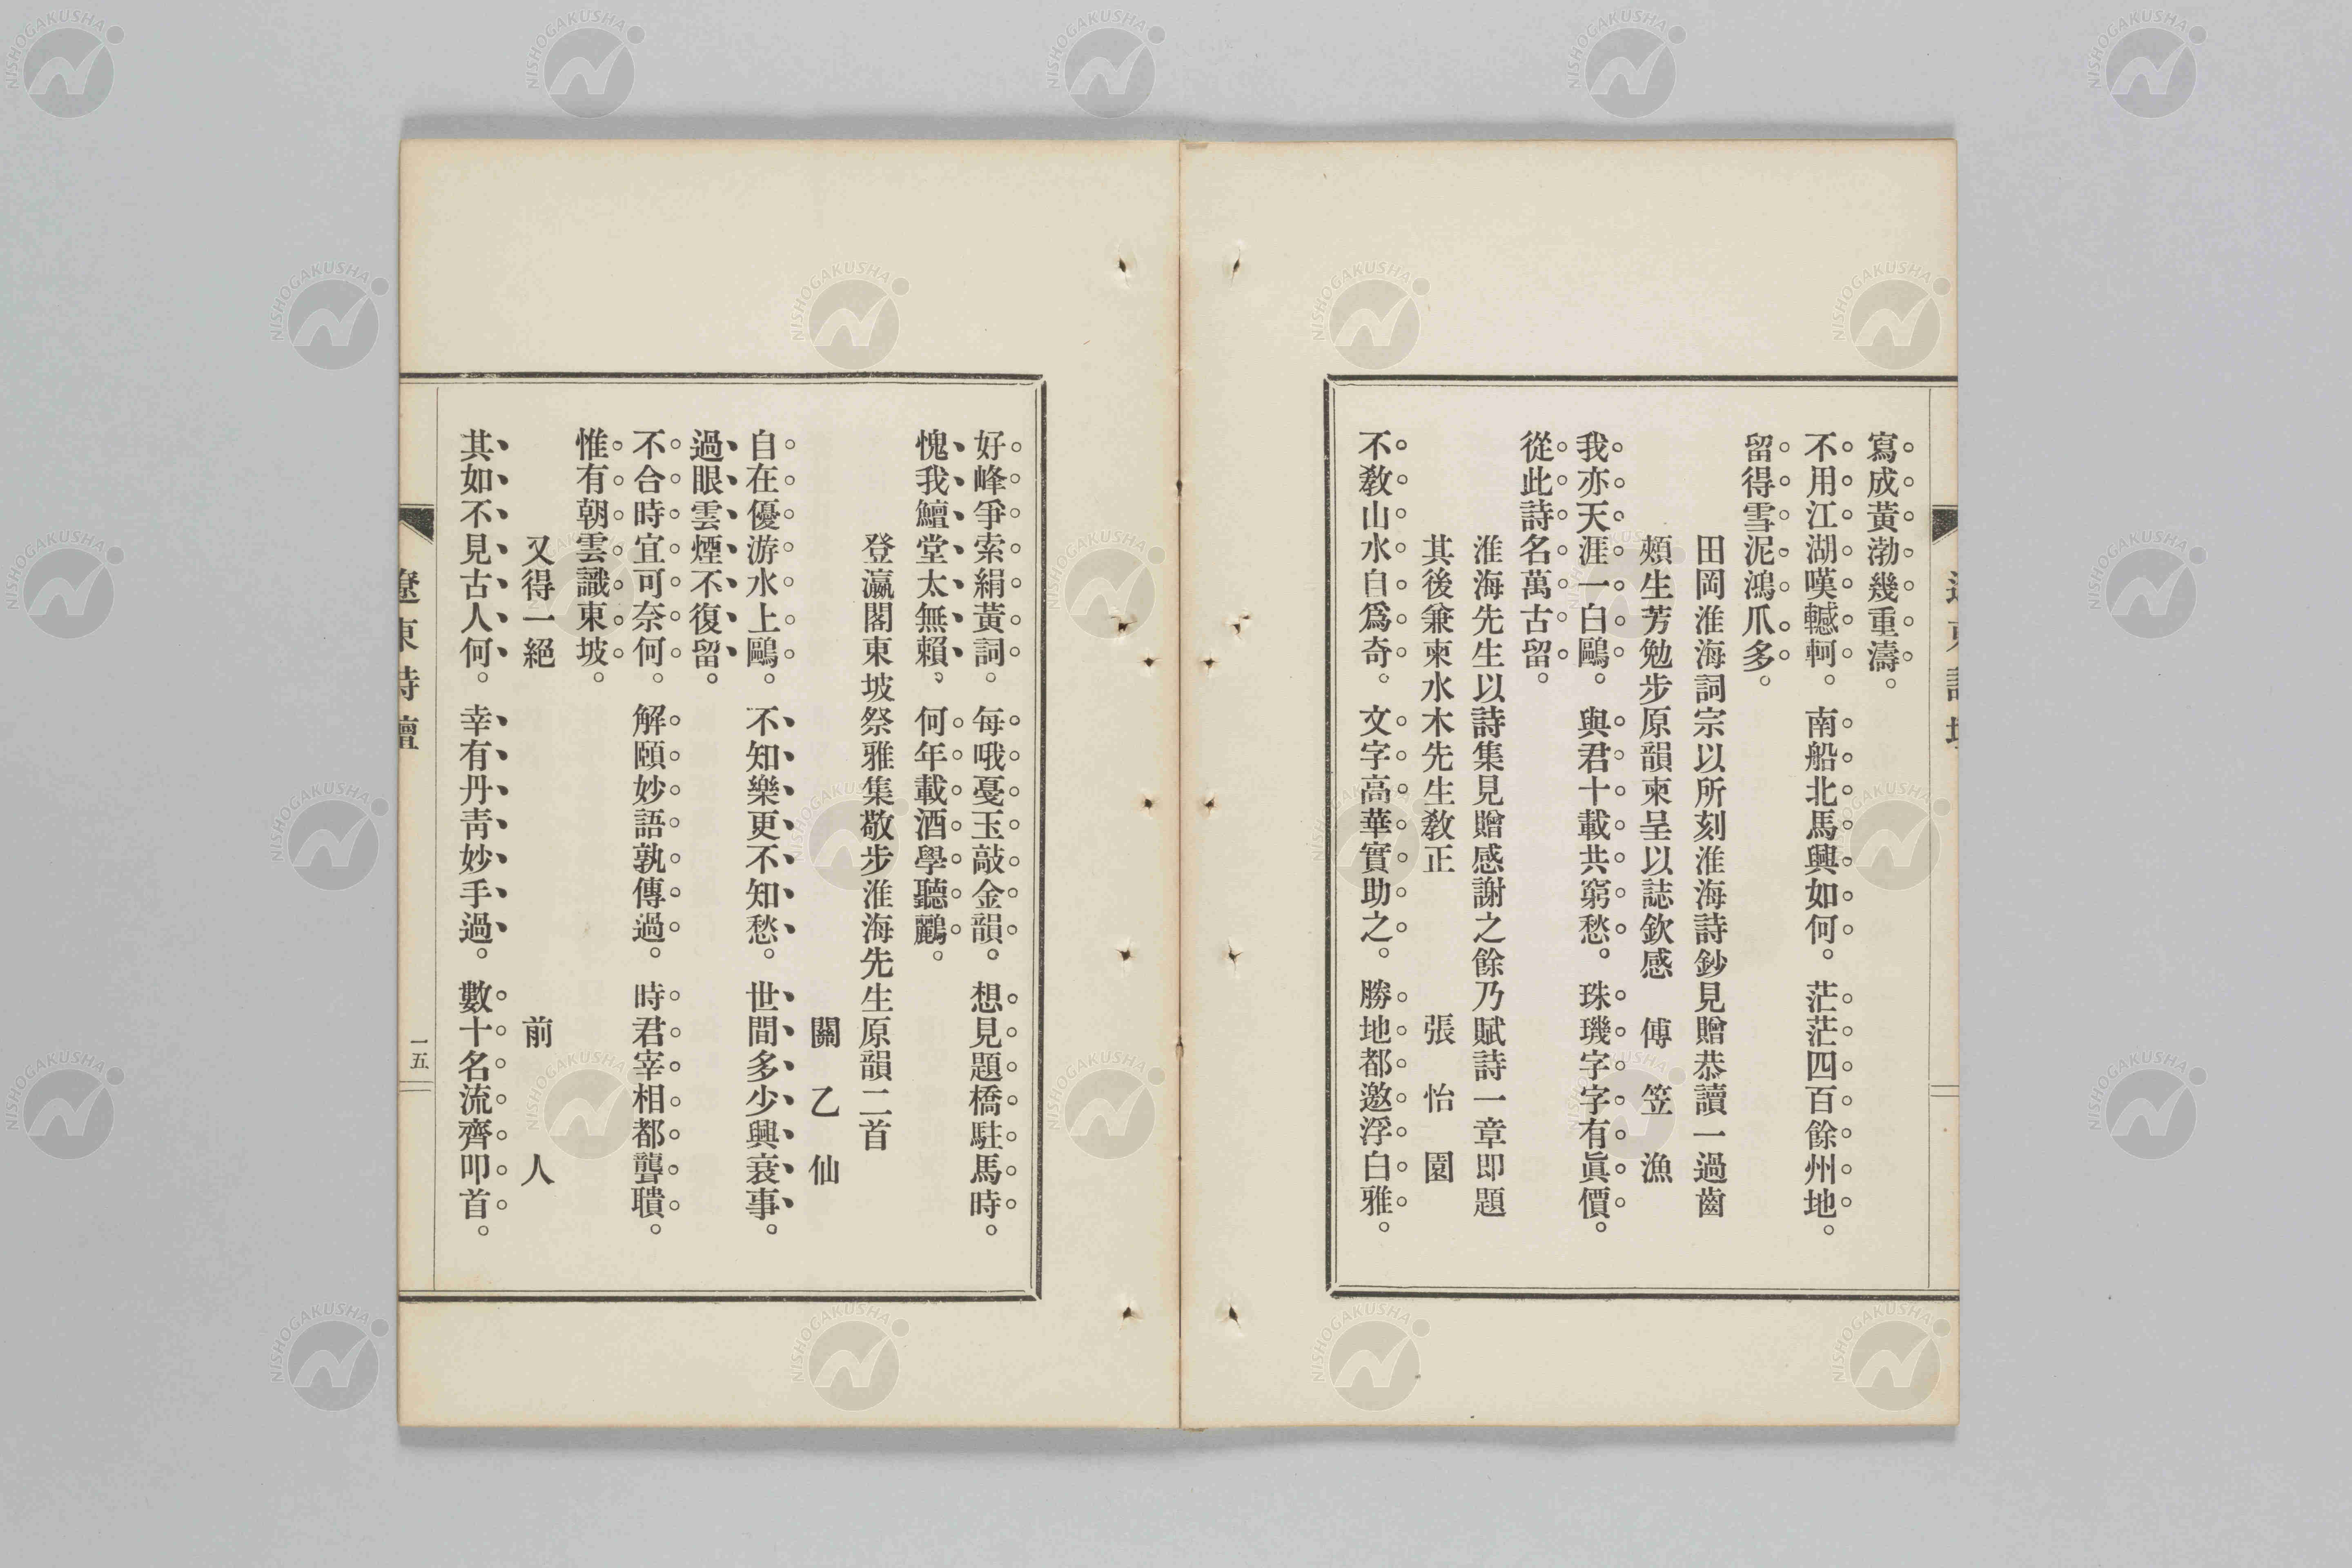 寫成黃渤幾重濤。
不用江湖嘆轗軻。南船北馬興如何。茫茫四百餘州地。
留得雪泥鴻爪多。
田岡淮海詞宗以所刻淮海詩鈔見贈恭讀一過齒
頰生芳勉步原韻柬呈以誌欽感　傅　笠　漁
我亦天涯一白鷗。與君十載共窮愁。珠璣字字有眞價。
從此詩名萬古留。
淮海先生以詩集見贈感謝之餘乃賦詩一章即題
其後兼柬水木先生敎正　張　怡　園
不敎山水自爲奇。文字高華實助之。勝地都邀浮白雅。
好峰爭索絹黃詞。每哦戞玉敲金韻。想見題橋駐馬時。
愧我鱣堂太無賴、何年載酒學聽鸝。
登瀛閣東坡祭雅集敬步淮海先生原韻二首
關　乙　仙
自在優游水上鷗。不知樂更不知愁。世間多少興衰事。
過眼雲煙不復留。
不合時宜可奈何。解頤妙語孰傳過。時君宰相都聾聵。
惟有朝雲識東坡。
又得一絕　前　人
其如不見古人何。幸有丹靑妙手過。數十名流齊叩首。
遼東詩壇
一五
NISHOGAKUSHA